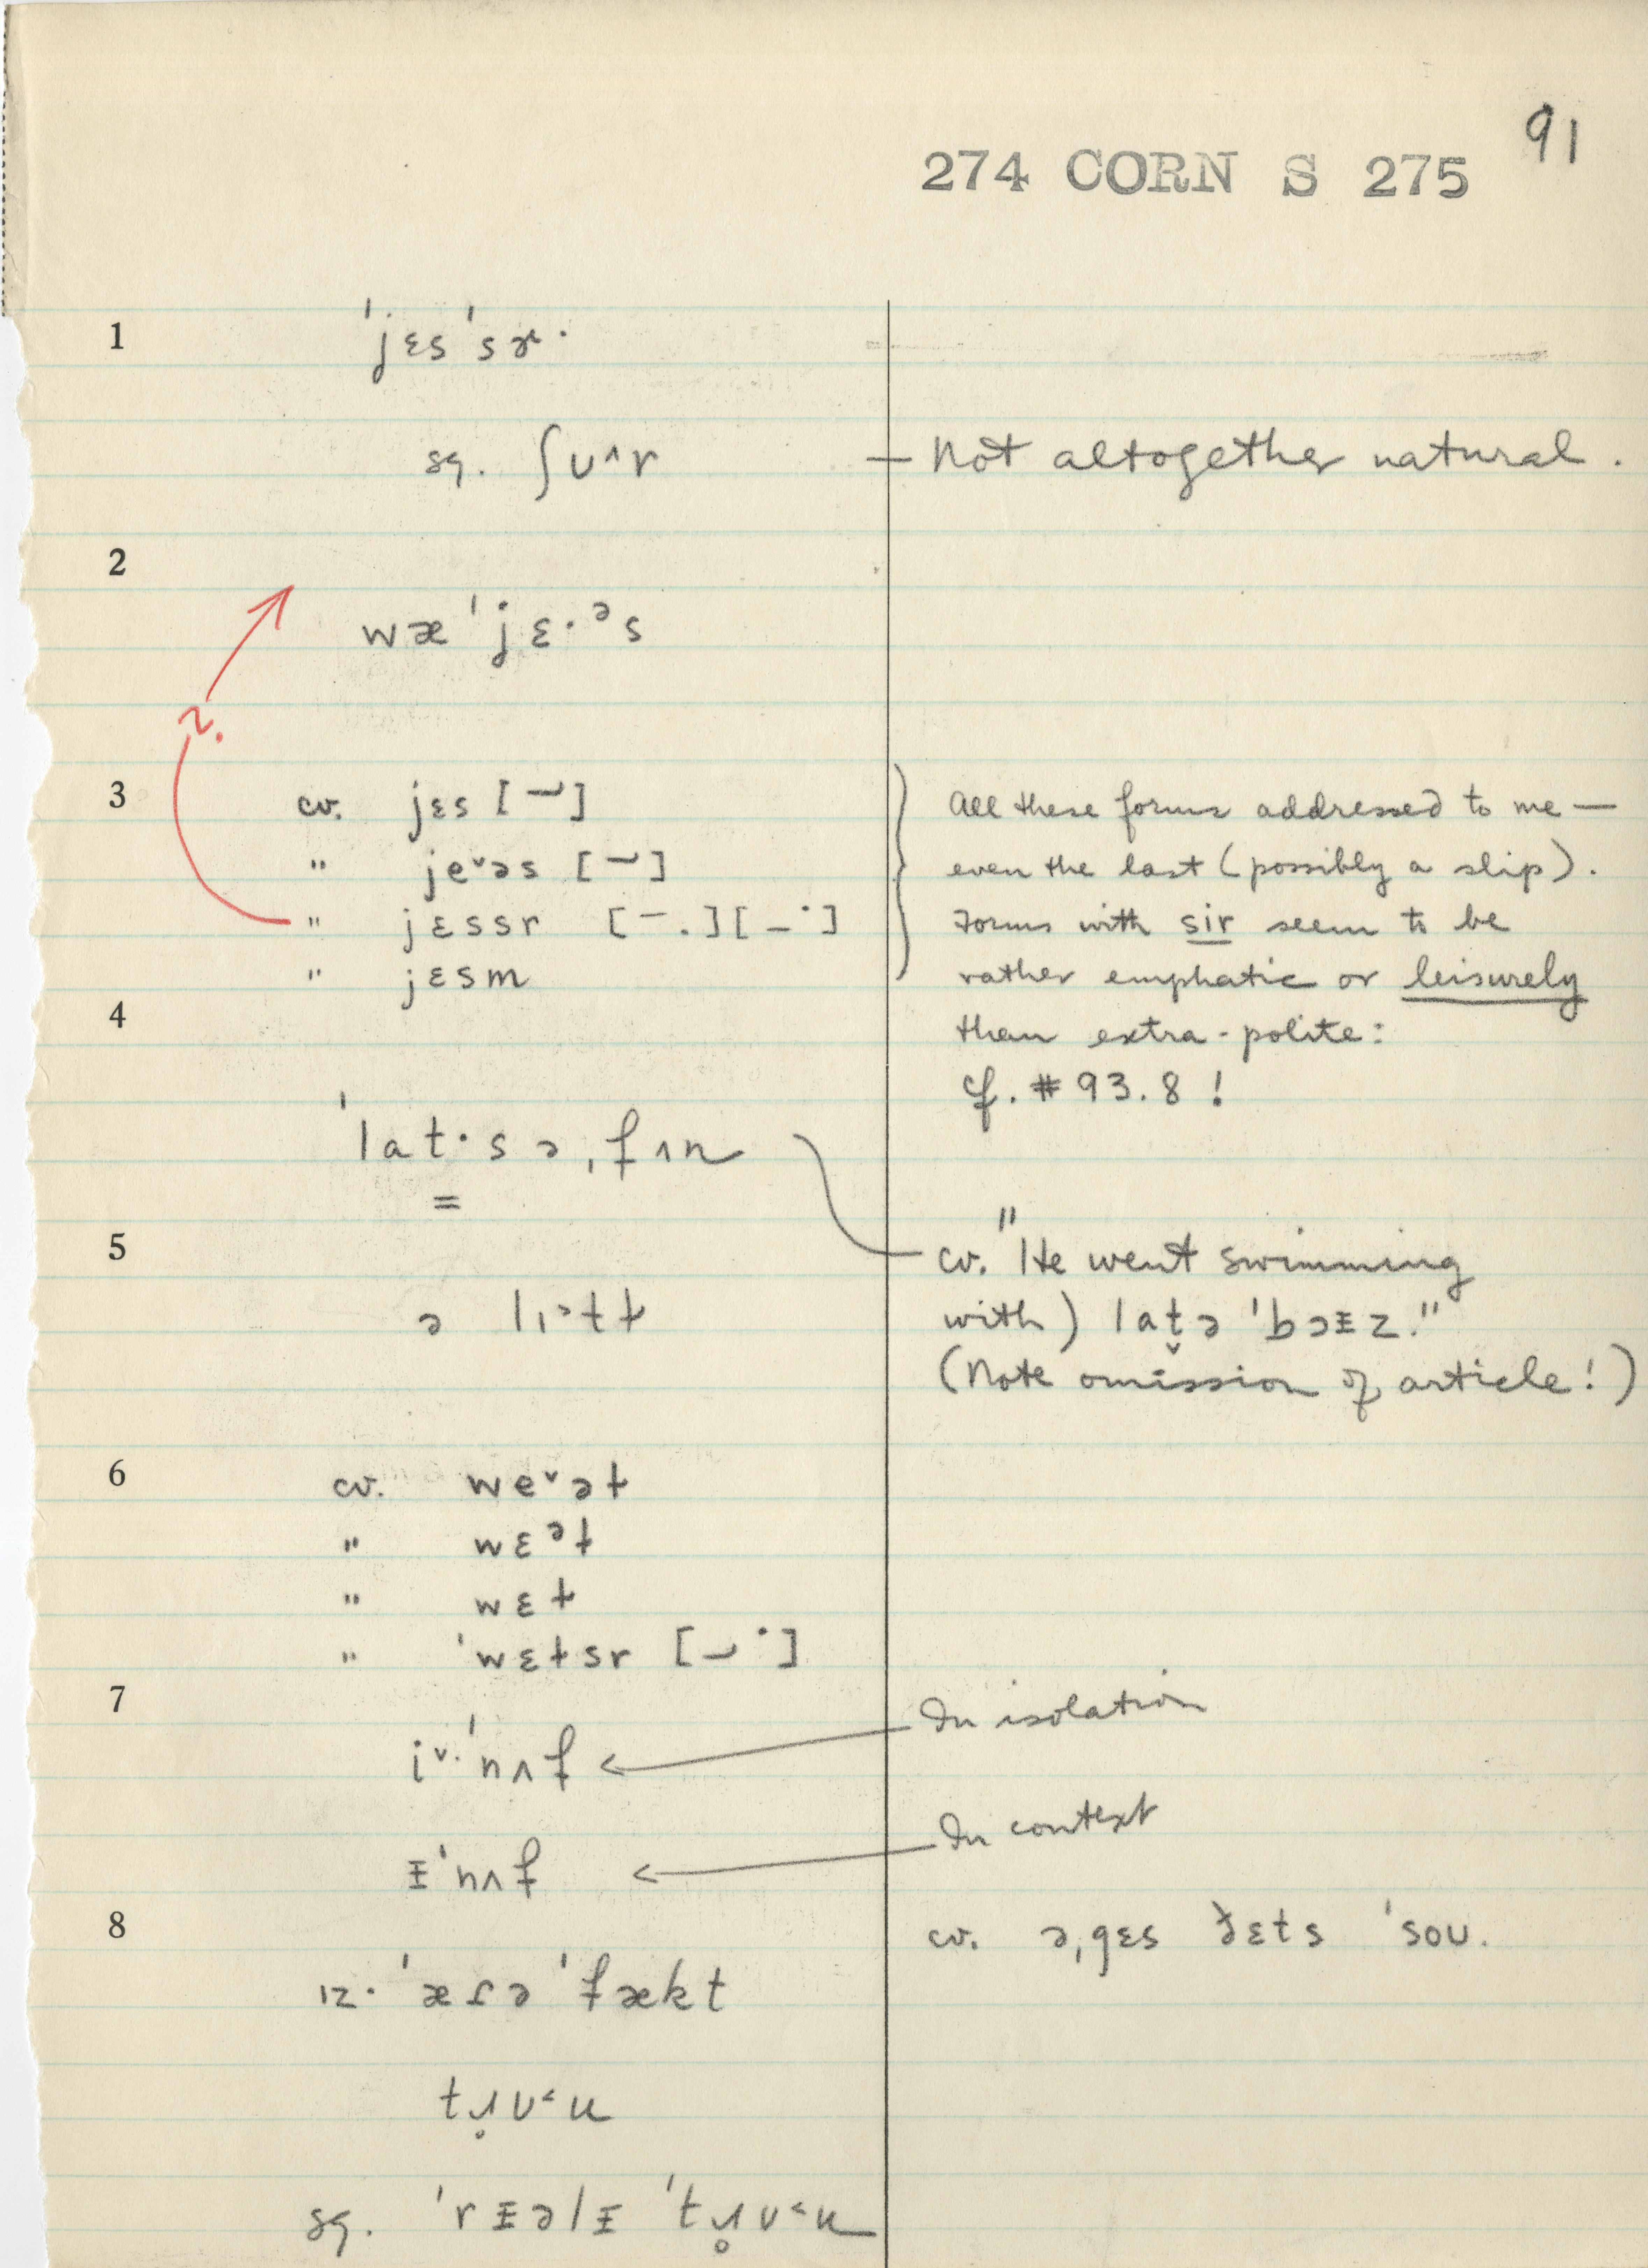 91
274 CORN S 275
1 ˈjɛsˈsɚ·
sq. ʃʊ^r — Not altogether natural.
2
wæˈjɛ·ᵊs
?.
3 cv. jɛs [¯˘] All these forms addressed to me —
" jeᵛəs [¯˘] even the last (possibly a slip).
" jɛssr [¯.][_˙] Forms with sir seem to be
" jɛsm rather emphatic or leisurely
4 than extra-polite:
cf. #93.8!
ˈlat·sə,fʌn
=
5 cv. "He went swimming
ə lɪᵊtɫ with) lat̬ə ˈbɔɪz."
(Note omission of article!)
6 cv. weᵛəɫ
" wɛᵊɫ
" wɛɫ
" ˈwɛɫsr [_˙]
7 In isolation
iᵛ·ˈnʌf ←
In context
ɪˈnʌf ←
8 cv. ə,gɛs ðɛts ˈsoʊ.
ɪz·ˈæɾəˈfækt
tɹ̥ʊ˂u
sq. ˈrɪəlɪ ˈtɹ̥ʊ˂u